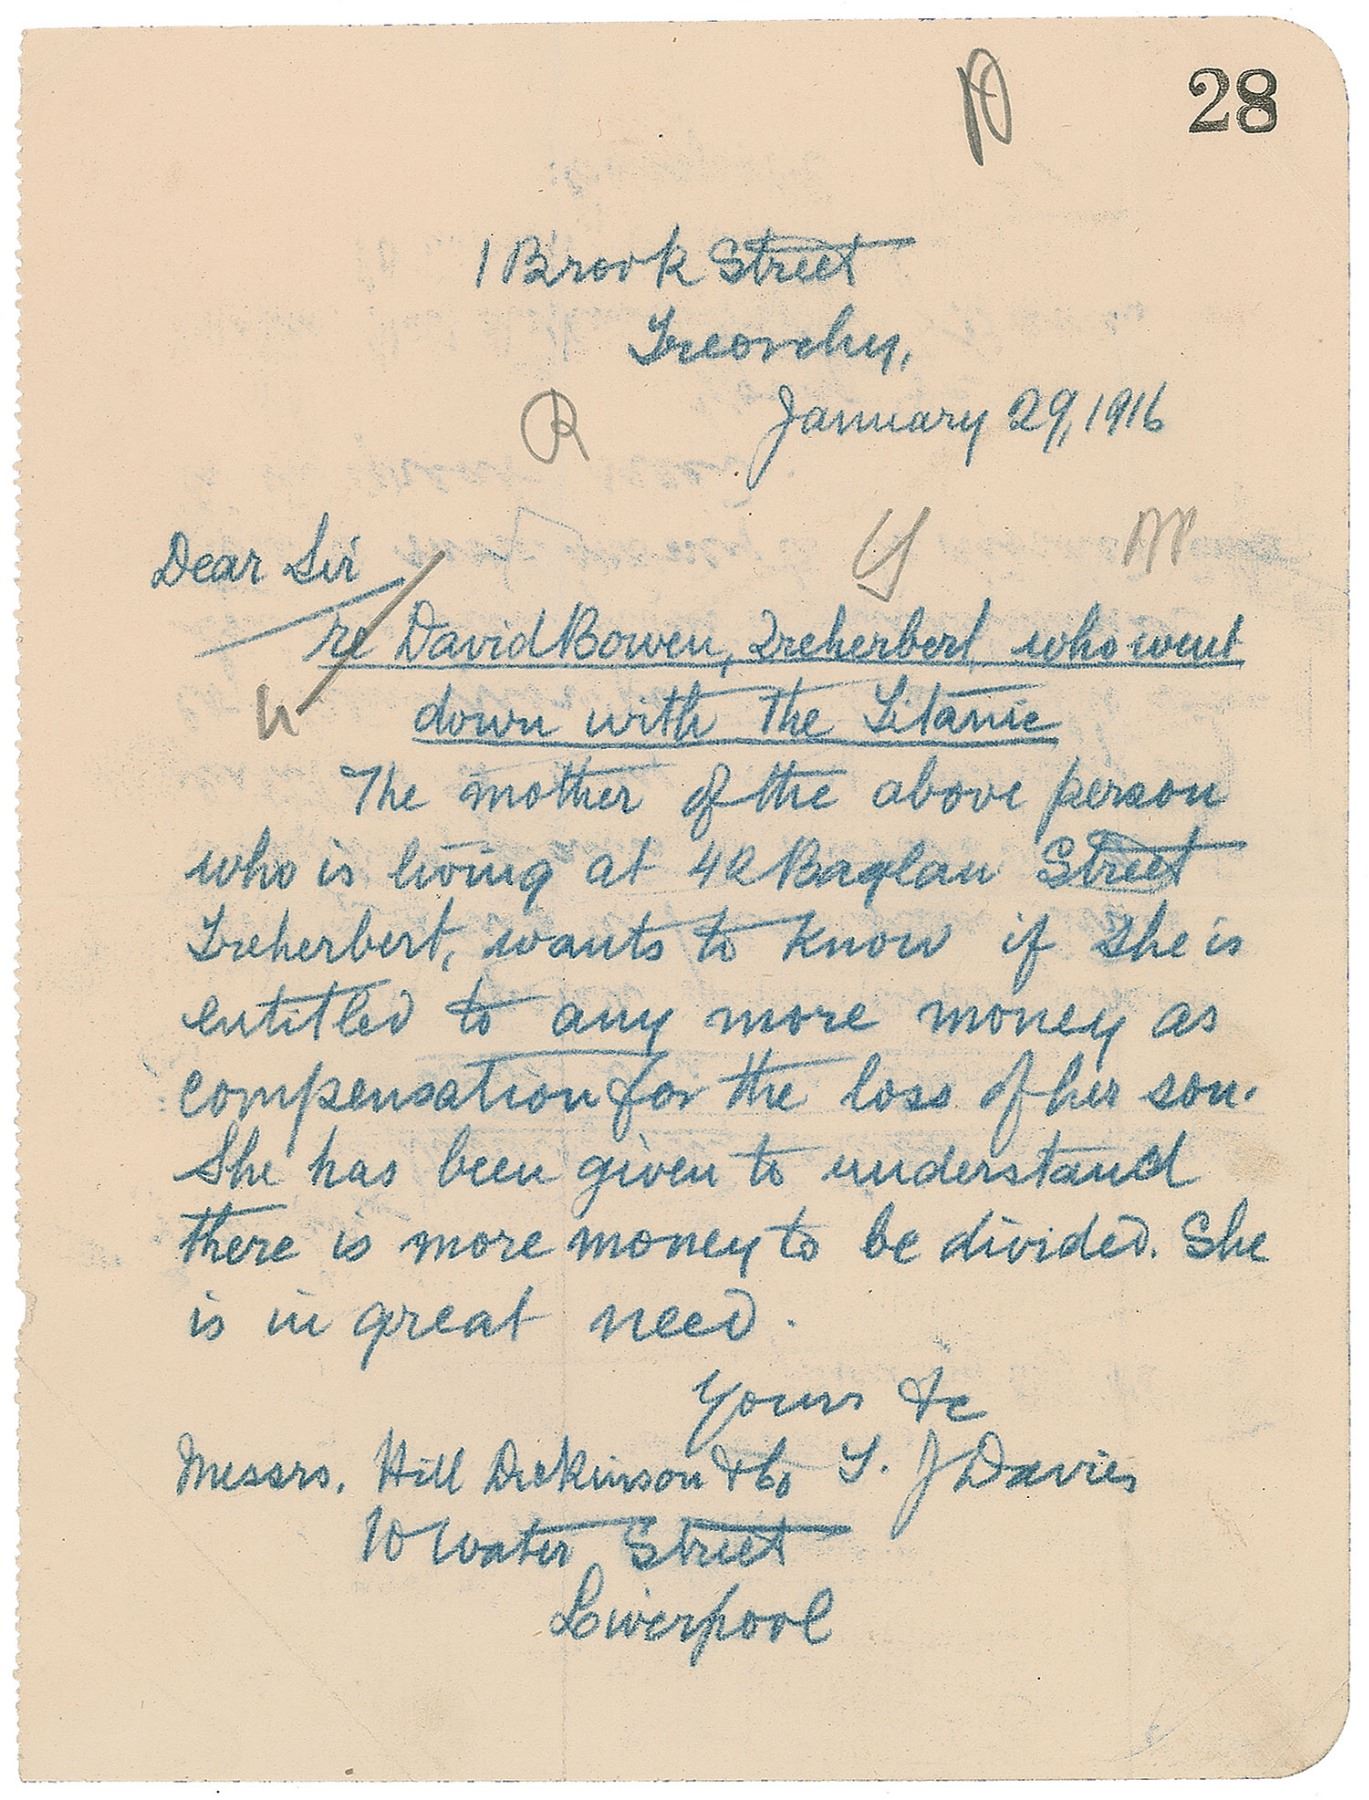 28
1 Brook Street
Treorchy,
January 29, 1916
R
Dear Sir
re David Bowen, Treherbert who went
down with the Titanic
The mother of the above person
who is living at 42 Baglan Street
Treherbert, wants to know if she is
entitled to any more money as
compensation for the loss of her son.
She has been given to understand
there is more money to be divided. She
is in great need.
Yours &c
Messrs. Hill Dickinson & Co T. J Davies
10 Water Street
Liverpool